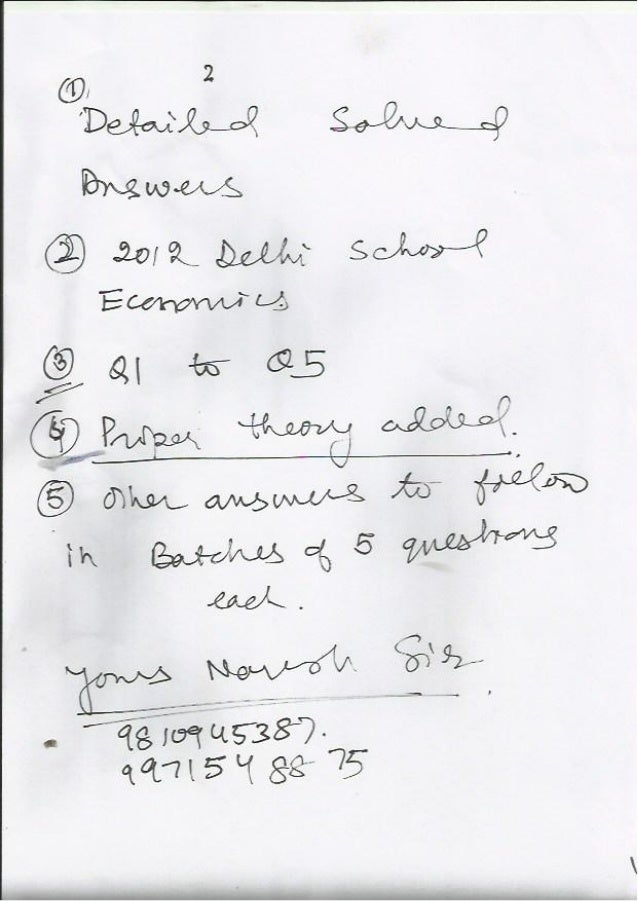 2
① Detailed Solved
Answers
② 2012 Delhi School
Economics
③ Q1 to Q5
④ Proper theory added.
⑤ Other answers to follow
in Batches of 5 questions
each.
Yours Naresh Sir
9810945387.
9971548875